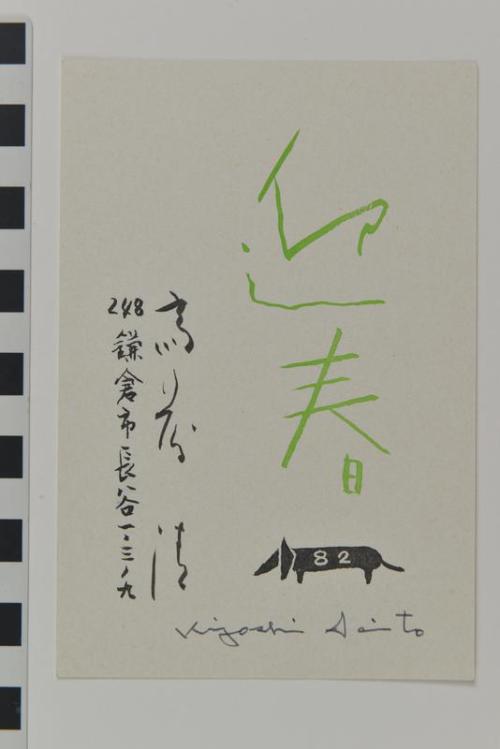 迎春
斎藤 清
248 鎌倉市長谷一・三ノ九
82
Kiyoshi Saito